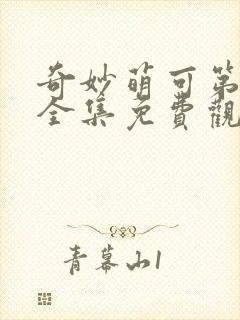 奇妙萌可第
全集免費觀
青幕山1